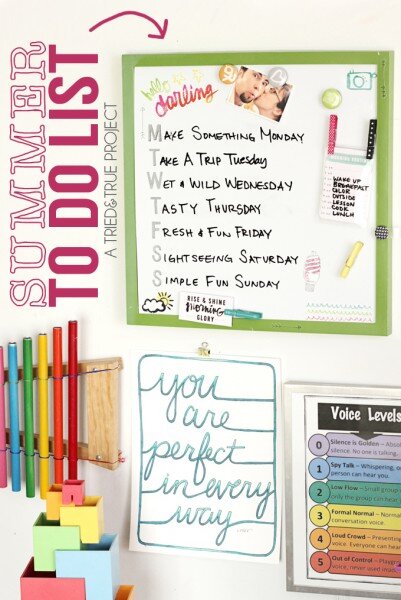 SUMMER
TO DO LIST
A TRIED & TRUE PROJECT
hello
darling
MAKE SOMETHING MONDAY
TAKE A TRIP TUESDAY
WET & WILD WEDNESDAY
TASTY THURSDAY
FRESH & FUN FRIDAY
SIGHTSEEING SATURDAY
SIMPLE FUN SUNDAY
RISE & SHINE
morning
GLORY
MORNING
WAKE UP
BREAKFAST
COLOR
OUTSIDE
LESSON
COOK
LUNCH
you
are
perfect
in every
way
Voice Levels
0 Silence is Golden - Absol
silence. No one is talking.
1 Spy Talk - Whispering, o
person can hear you.
2 Low Flow - Small group
only the group can hear
3 Formal Normal - Norma
conversation voice.
4 Loud Crowd - Presenting
voice. Everyone can hear
5 Out of Control - Playgro
voice, never used insid